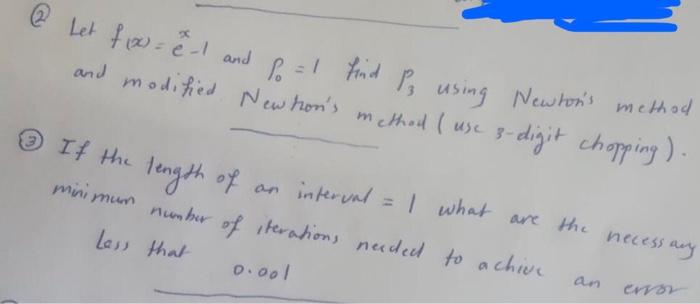 ② Let f(x) = e^x - 1 and P₀ = 1 find P₃ using Newton's method
and modified Newton's method (use 3-digit chopping).
③ If the length of an interval = 1 what are the necessary
minimum number of iterations needed to achive an error
less that 0.001